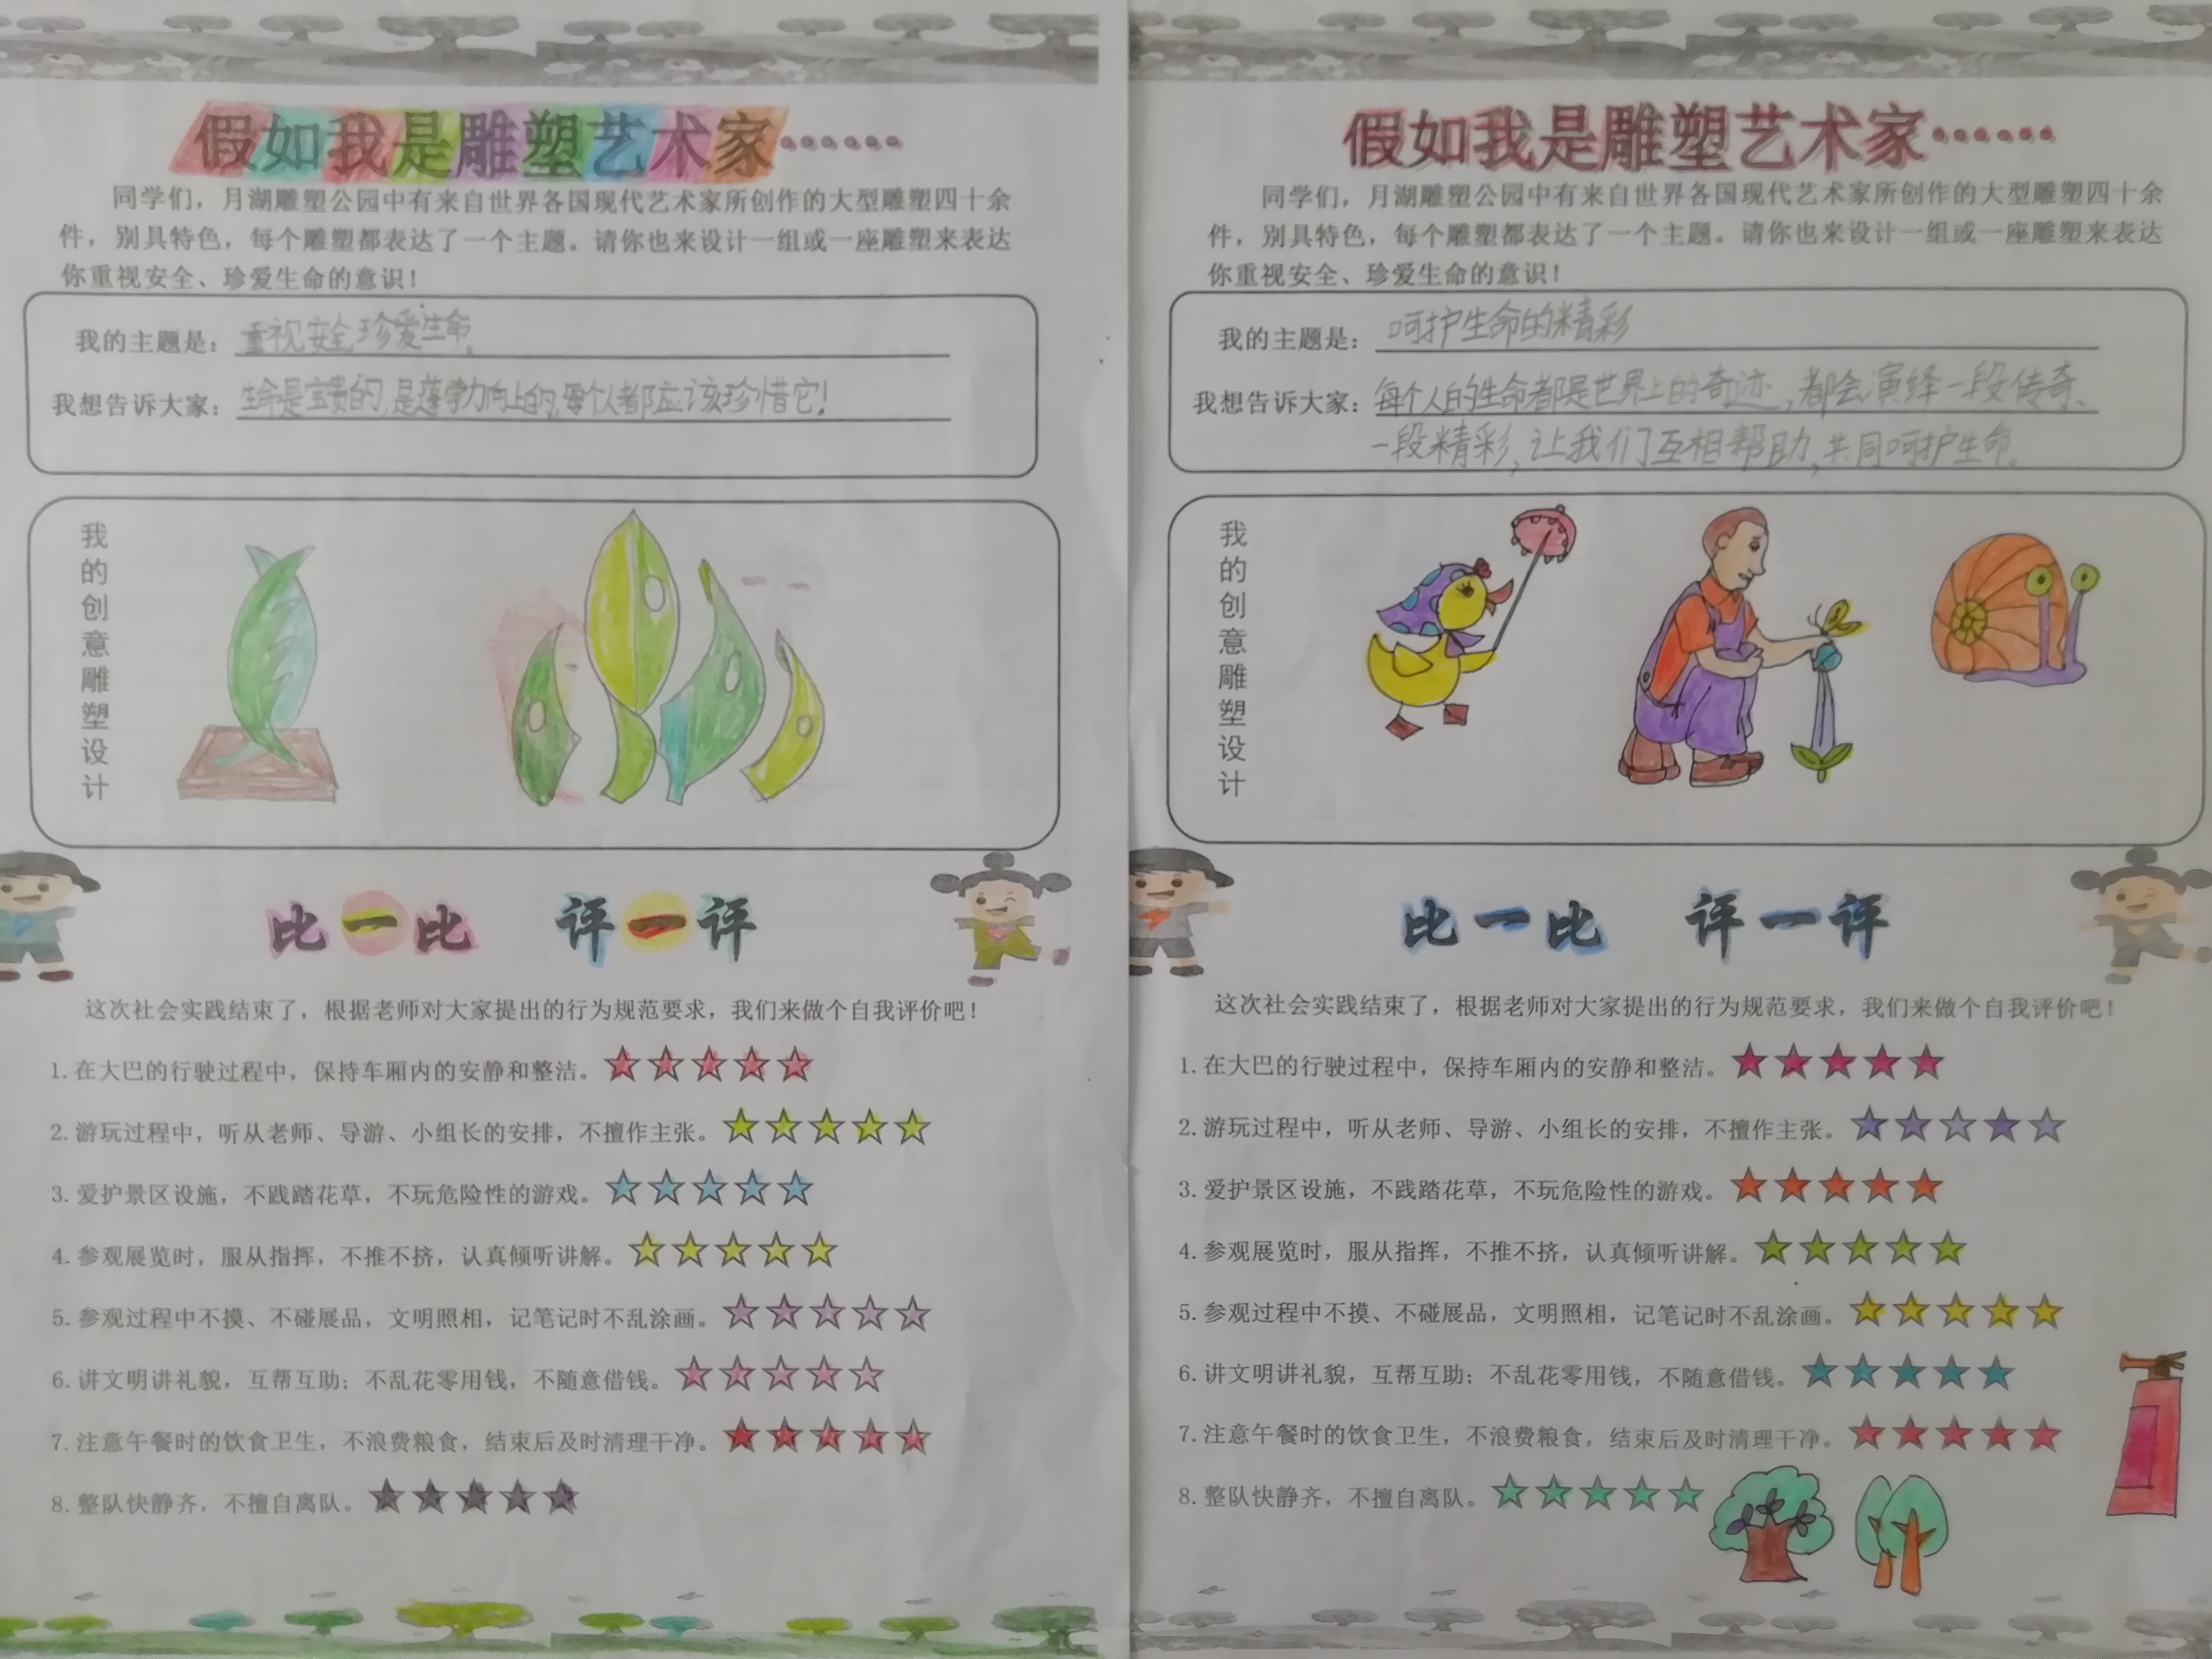 假如我是雕塑艺术家……
同学们，月湖雕塑公园中有来自世界各国现代艺术家所创作的大型雕塑四十余
件，别具特色，每个雕塑都表达了一个主题。请你也来设计一组或一座雕塑来表达
你重视安全、珍爱生命的意识！
我的主题是：重视安全，珍爱生命。
我想告诉大家：生命是宝贵的，是蓬勃向上的，每个人都应该珍惜它！
我的创意雕塑设计
比一比 评一评
这次社会实践结束了，根据老师对大家提出的行为规范要求，我们来做个自我评价吧！
1. 在大巴的行驶过程中，保持车厢内的安静和整洁。☆☆☆☆☆
2. 游玩过程中，听从老师、导游、小组长的安排，不擅作主张。☆☆☆☆☆
3. 爱护景区设施，不践踏花草，不玩危险性的游戏。☆☆☆☆☆
4. 参观展览时，服从指挥，不推不挤，认真倾听讲解。☆☆☆☆☆
5. 参观过程中不摸、不碰展品，文明照相，记笔记时不乱涂画。☆☆☆☆☆
6. 讲文明讲礼貌，互帮互助；不乱花零用钱，不随意借钱。☆☆☆☆☆
7. 注意午餐时的饮食卫生，不浪费粮食，结束后及时清理干净。☆☆☆☆☆
8. 整队快静齐，不擅自离队。☆☆☆☆☆
假如我是雕塑艺术家……
同学们，月湖雕塑公园中有来自世界各国现代艺术家所创作的大型雕塑四十余
件，别具特色，每个雕塑都表达了一个主题。请你也来设计一组或一座雕塑来表达
你重视安全、珍爱生命的意识！
我的主题是：呵护生命的精彩
我想告诉大家：每个人的生命都是世界上的奇迹，都会演绎一段传奇、
一段精彩，让我们互相帮助，共同呵护生命。
我的创意雕塑设计
比一比 评一评
这次社会实践结束了，根据老师对大家提出的行为规范要求，我们来做个自我评价吧！
1. 在大巴的行驶过程中，保持车厢内的安静和整洁。☆☆☆☆☆
2. 游玩过程中，听从老师、导游、小组长的安排，不擅作主张。☆☆☆☆☆
3. 爱护景区设施，不践踏花草，不玩危险性的游戏。☆☆☆☆☆
4. 参观展览时，服从指挥，不推不挤，认真倾听讲解。☆☆☆☆☆
5. 参观过程中不摸、不碰展品，文明照相，记笔记时不乱涂画。☆☆☆☆☆
6. 讲文明讲礼貌，互帮互助；不乱花零用钱，不随意借钱。☆☆☆☆☆
7. 注意午餐时的饮食卫生，不浪费粮食，结束后及时清理干净。☆☆☆☆☆
8. 整队快静齐，不擅自离队。☆☆☆☆☆